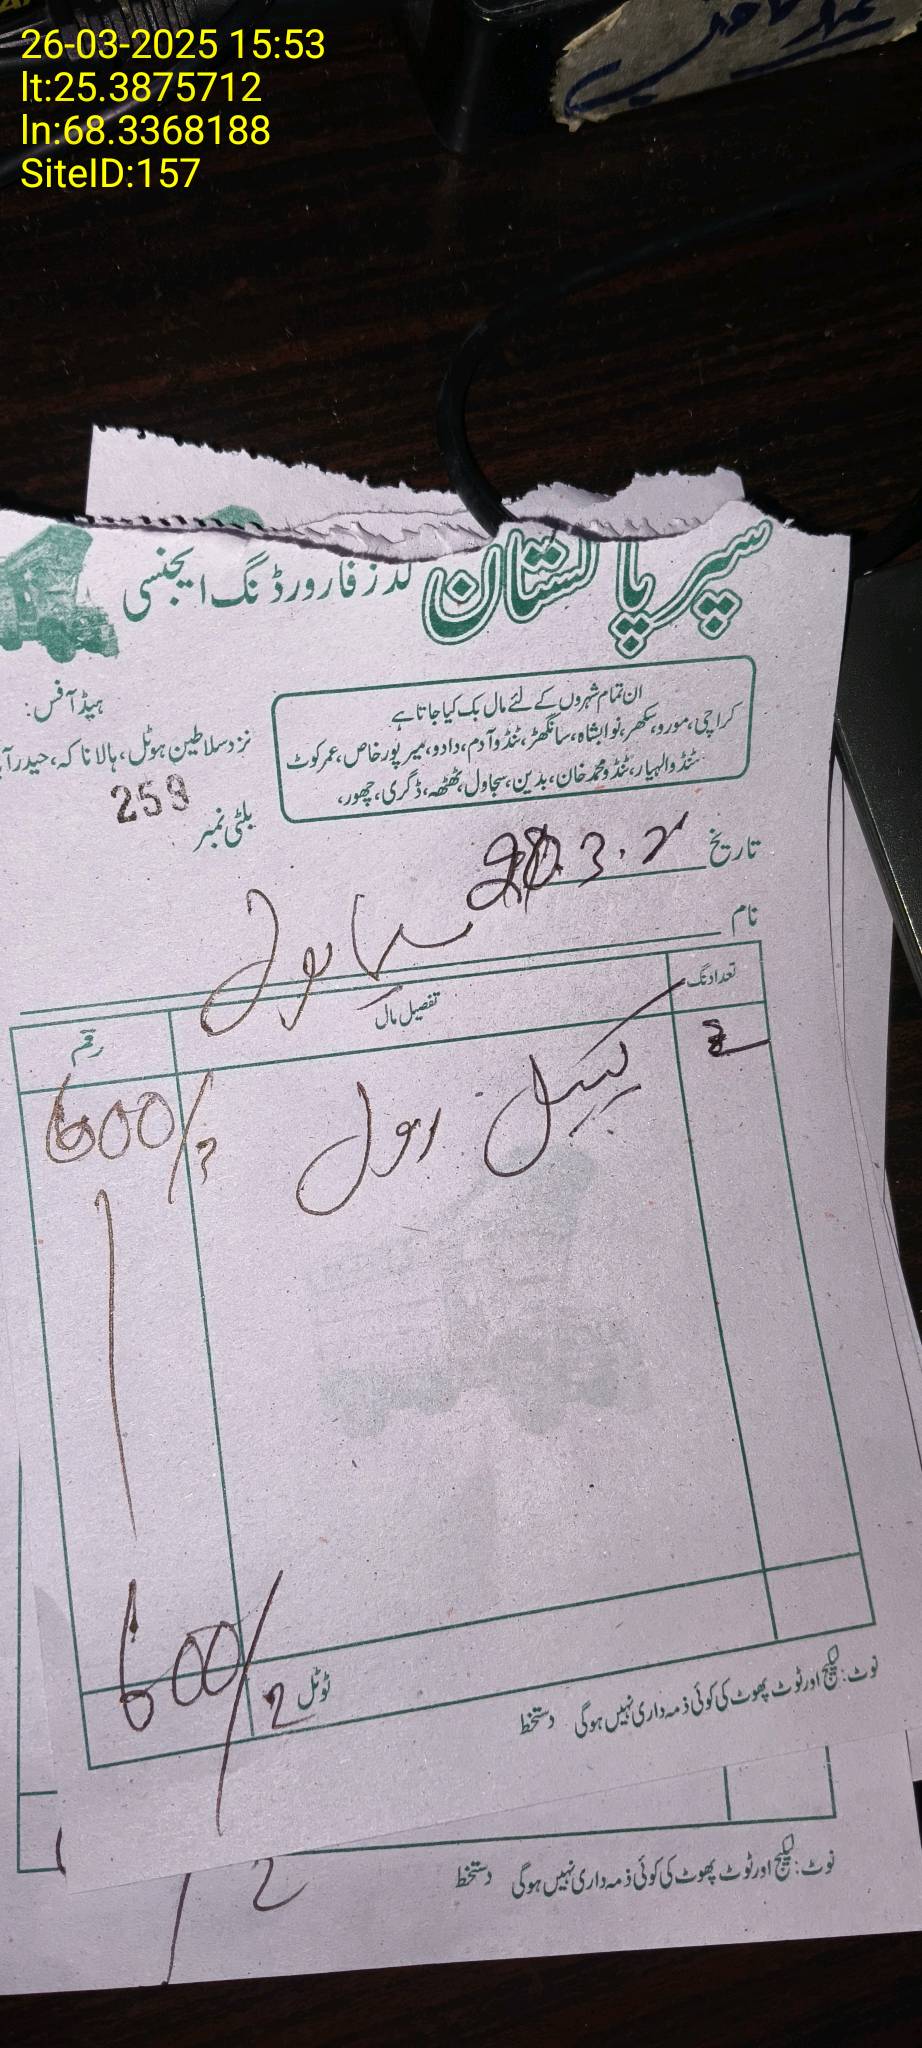 26-03-2025 15:53
lt:25.3875712
ln:68.3368188
SiteID:157
سپر پاکستان گڈز فارورڈنگ ایجنسی
ان تمام شہروں کے لئے مال بک کیا جاتا ہے
کراچی، مورو، سکھر، نوابشاہ، سانگھڑ، ٹنڈوآدم، دادو، میرپورخاص، عمرکوٹ
ٹنڈوالہیار، ٹنڈو محمد خان، بدین، سجاول، ٹھٹھہ، ڈگری، چھور،
ہیڈ آفس:
نزد سلاطین ہوٹل، ہالا ناکہ، حیدرآ
بلٹی نمبر 259
تاریخ
نام
تعداد نگ تفصیل مال رقم
2 کیبل رول 600/
ٹوٹل 600/
نوٹ: لیکیج اور ٹوٹ پھوٹ کی کوئی ذمہ داری نہیں ہوگی دستخط
نوٹ: لیکیج اور ٹوٹ پھوٹ کی کوئی ذمہ داری نہیں ہوگی دستخط